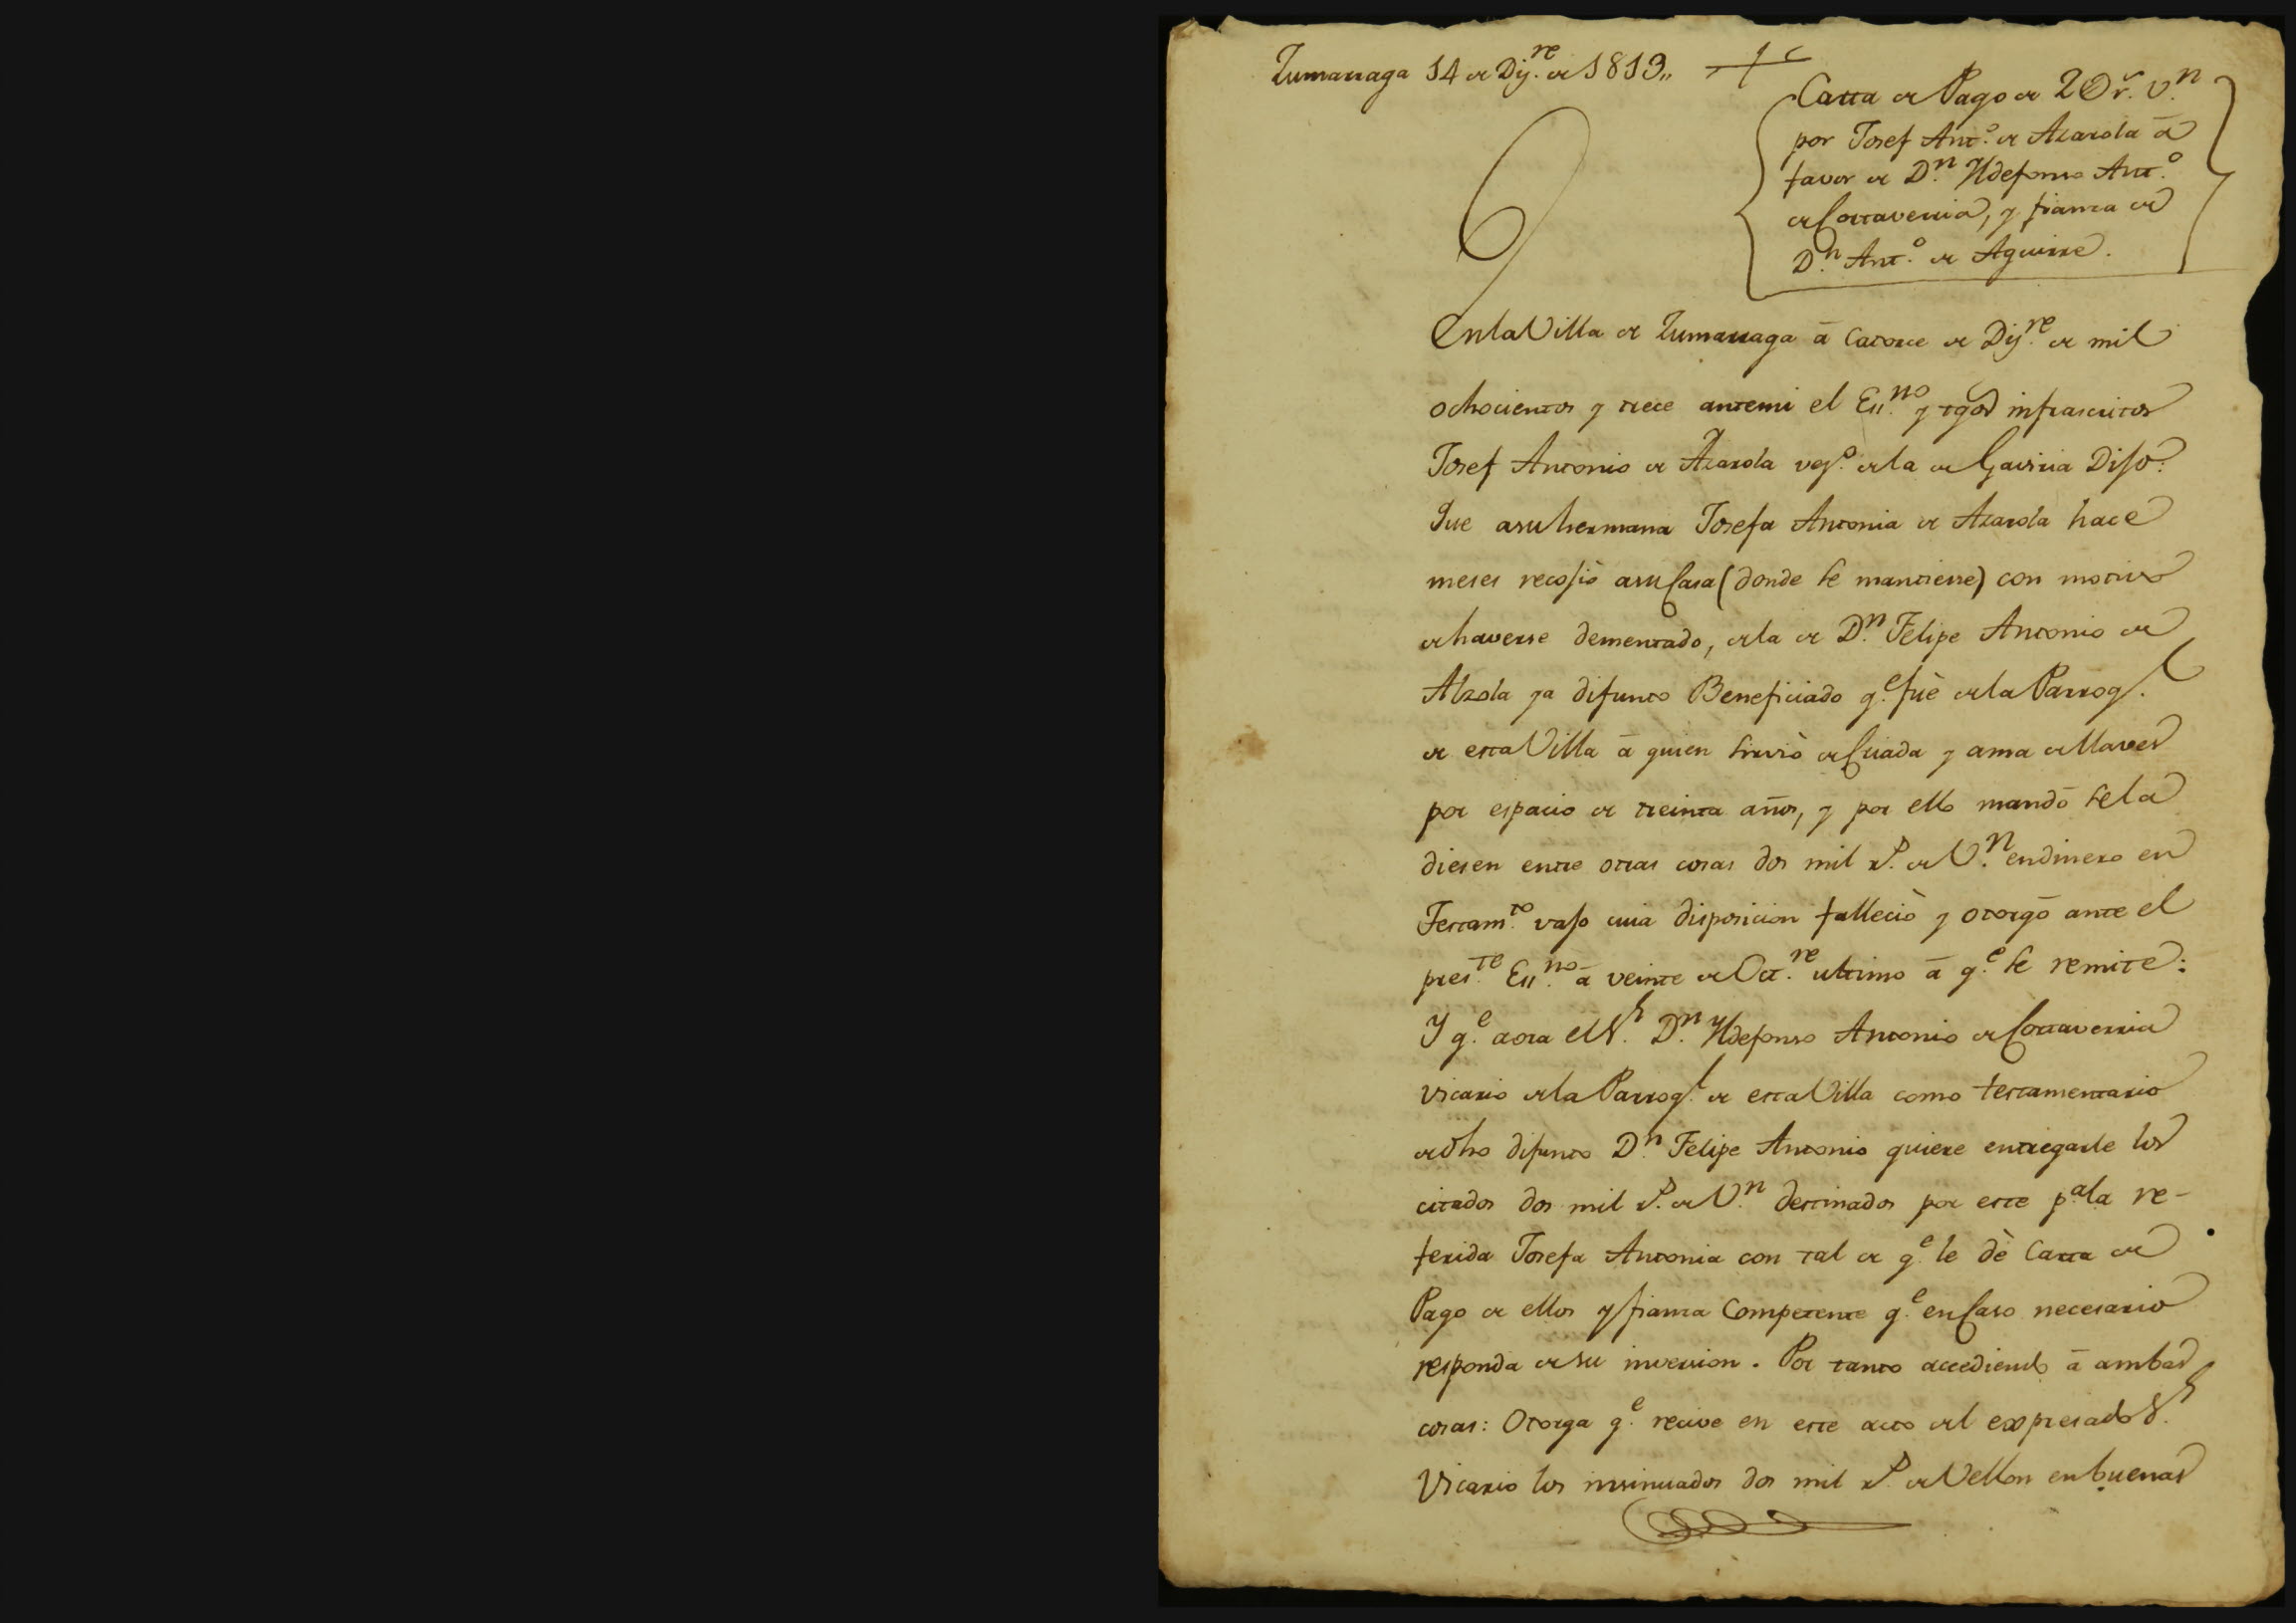 Zumarraga 14 de Dij.re de 1813,,
Carta de Pago de 2Ør.s V.n
por Josef Ant.o de Azarola á
favor de D.n Yldefonso Ant.o
de Cortaverria, y fianza de
D.n Ant.o de Aguirre.
En la Villa de Zumarraga á Catorce de Dij.re de mil
ochocientos y trece antemi el Es.no y tgos infrascritos
Josef Antonio de Azarola veg.o de la de Gaviria Dijo:
Que asu hermana Josefa Antonia de Azarola hace
meses recojiò asu Casa (donde se mantiene) con motivo
de haverse dementado, de la de D.n Felipe Antonio de
Alzola ya difunto Beneficiado q.e fuè de la Parroq.l
de esta Villa á quien sirviò de Criada y ama de llaves
por espacio de treinta años, y por ello mandó se la
diesen entre otras cosas dos mil r.s de V.n en dinero en
Testam.to vajo cuia disposicion falleciò y otorgó ante el
pres.te Es.no á veinte de Oct.re ultimo á q.e se remite:
Y q.e aora el S.r D.n Yldefonso Antonio de Cortaverria
Vicario de la Parroq.l de esta Villa como testamentario
de dho difunto D.n Felipe Antonio quiere entregarle los
citados dos mil r.s de V.n destinados por este p.a la re-
ferida Josefa Antonia con tal de q.e le dè Carta de
Pago de ellos y fianza Competente q.e en Caso necesario
responda de su inversion. Por tanto accediendo á ambas
cosas: Otorga q.e recive en este acto del expresado S.r
Vicario los insinuados dos mil r.s de Vellon en buenas